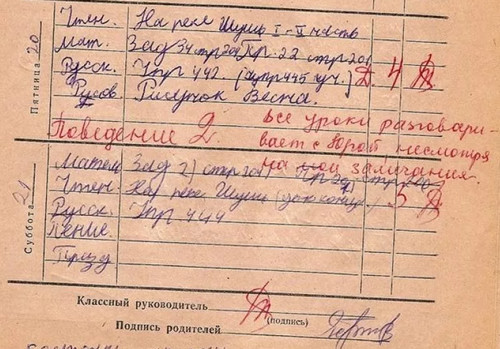 Пятница 20
Чтен. На реке Шуши I-II часть
Мат. Зад 34 стр 204 пр. 22 стр 201
Русск. Упр 442. (упр 445 уч.) 4
Рисов Рисунок Весна.
все уроки разговари-
Поведение 2. вает с Юрой несмотря
на мои замечания.
Суббота 21
Матем Зад 2) стр 204
Чтен. На реке Шуши (до конца) 5
Русск. Упр 444
Пение.
Труд
Классный руководитель
(подпись)
Подпись родителей